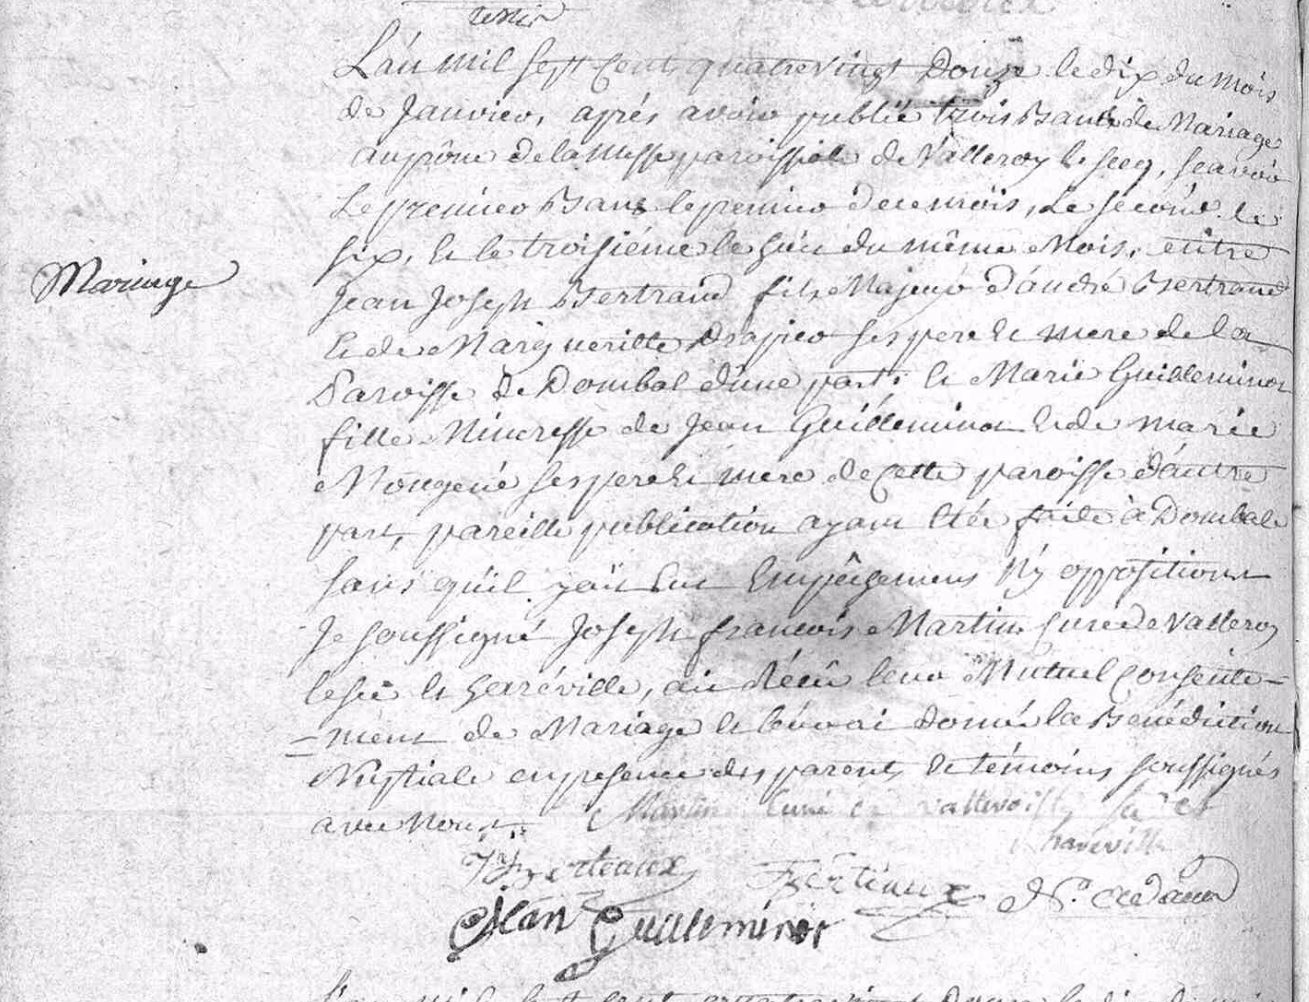 L'an mil sept Cent quatrevingt Douze le dix du mois
de Janvier, aprés avoir publié trois Bans de Mariage
au prône de la Messe paroissiale de Valleroy le secq, scavoir
Le premier Bans le premier de ce mois, Le second le
six, et le troisiéme le huit du même Mois, entre
Mariage
Jean Joseph Bertrand fils Majeur d'andré Bertrand
et de Margueritte Drapier ses pere et mere de la
Paroisse de Dombal d'une part, et Marie Guilleminot
fille Mineresse de Jean Guilleminot et de marie
Mougené ses pere et mere de cette paroisse d'autre
part, pareille publication ayant etée faite à Dombale
sans qu'il y ait eut Empêchement N'y opposition
Je soussigné Joseph francois Martin Curé de Valleroy
le sec et haréville, ai réçû leur Mutuel Consente-
-ment de Mariage et leur ai Donné la Bénédiction
Nuptiale en presence des parents et témoins soussignés
avec Nous. Martin Curé de valleroy le sec et
hareville
Berteaux
Jean Guilleminot